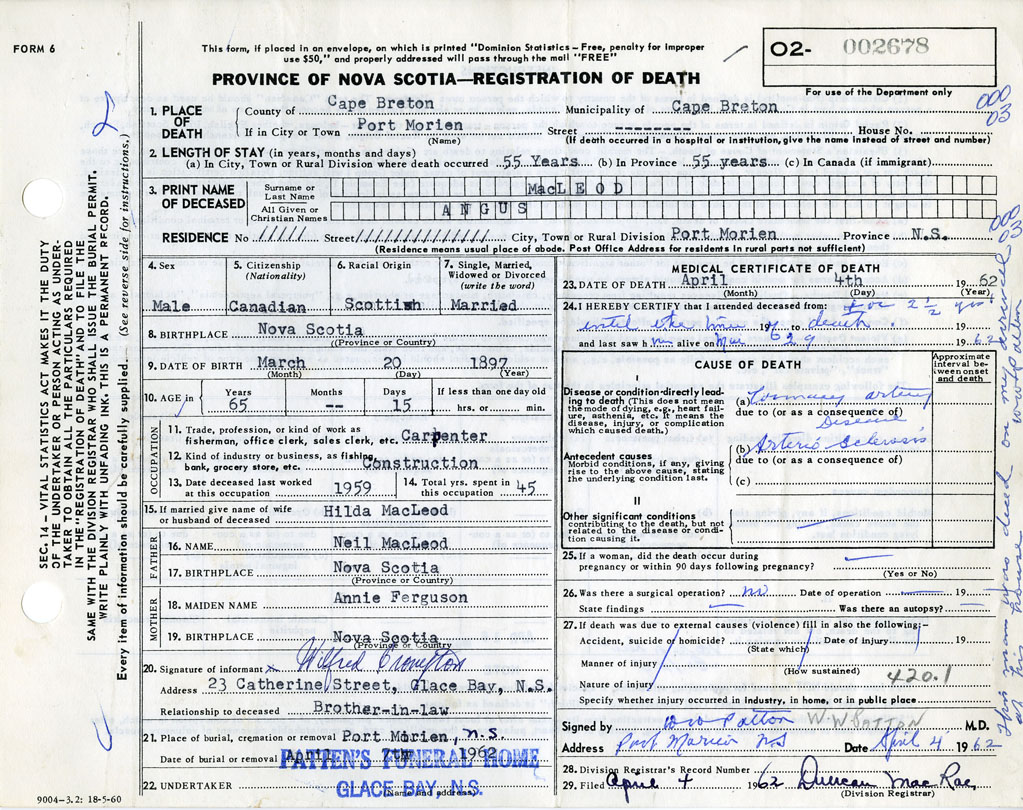 FORM 6
This form, if placed in an envelope, on which is printed "Dominion Statistics – Free, penalty for improper
use $50," and properly addressed will pass through the mail "FREE"
PROVINCE OF NOVA SCOTIA—REGISTRATION OF DEATH
O2- 002678
For use of the Department only
000
03
SEC. 14 – VITAL STATISTICS ACT MAKES IT THE DUTY
OF THE UNDERTAKER OR PERSON ACTING AS UNDER-
TAKER TO OBTAIN ALL THE PARTICULARS REQUIRED
IN THE "REGISTRATION OF DEATH" AND TO FILE THE
SAME WITH THE DIVISION REGISTRAR WHO SHALL ISSUE THE BURIAL PERMIT.
WRITE PLAINLY WITH UNFADING INK. THIS IS A PERMANENT RECORD.
Every item of information should be carefully supplied. (See reverse side for instructions,)
1. PLACE OF DEATH
County of Cape Breton Municipality of Cape Breton
If in City or Town Port Morien Street -------- House No.
(Name) (If death occurred in a hospital or institution, give the name instead of street and number)
2. LENGTH OF STAY (in years, months and days)
(a) In City, Town or Rural Division where death occurred 55 Years (b) In Province 55 years (c) In Canada (if immigrant)
3. PRINT NAME OF DECEASED
Surname or Last Name MacLEOD
All Given or Christian Names ANGUS
000
03
RESIDENCE No ///// Street ////////////// City, Town or Rural Division Port Morien Province N.S.
(Residence means usual place of abode. Post Office Address for residents in rural parts not sufficient)
4. Sex 5. Citizenship (Nationality) 6. Racial Origin 7. Single, Married, Widowed or Divorced (write the word)
Male Canadian Scottish Married
8. BIRTHPLACE Nova Scotia
(Province or Country)
9. DATE OF BIRTH March 20 1897
(Month) (Day) (Year)
10. AGE in Years Months Days If less than one day old
65 -- 15 hrs. or min.
OCCUPATION
11. Trade, profession, or kind of work as
fisherman, office clerk, sales clerk, etc. Carpenter
12. Kind of industry or business, as fishing,
bank, grocery store, etc. Construction
13. Date deceased last worked at this occupation 1959 14. Total yrs. spent in this occupation 45
15. If married give name of wife
or husband of deceased Hilda MacLeod
FATHER
16. NAME Neil MacLeod
17. BIRTHPLACE Nova Scotia
(Province or Country)
MOTHER
18. MAIDEN NAME Annie Ferguson
19. BIRTHPLACE Nova Scotia
(Province or Country)
20. Signature of informant x Wilfred Crompton
Address 23 Catherine Street, Glace Bay, N.S.
Relationship to deceased Brother-in-law
21. Place of burial, cremation or removal Port Morien, N.S.
Date of burial or removal April 7th 1962
PATTEN'S FUNERAL HOME
22. UNDERTAKER GLACE BAY, N.S.
(Name and address)
9004–3.2: 18-5-60
MEDICAL CERTIFICATE OF DEATH
23. DATE OF DEATH April 4th 1962
(Month) (Day) (Year)
24. I HEREBY CERTIFY that I attended deceased from: for 2 1/2 yrs.
until the time 19 to death. 19
and last saw him alive on Mar 29 1962
CAUSE OF DEATH
Approximate interval between onset and death
I
Disease or condition directly leading to death (This does not mean
the mode of dying, e.g., heart failure, asthenia, etc. It means the
disease, injury, or complication which caused death.)
(a) Coronary artery
due to (or as a consequence of)
Disease
(b) Arterio Sclerosis
due to (or as a consequence of)
(c)
Antecedent causes
Morbid conditions, if any, giving
rise to the above cause, stating
the underlying condition last.
II
Other significant conditions
contributing to the death, but not
related to the disease or condition causing it.
25. If a woman, did the death occur during
pregnancy or within 90 days following pregnancy?
(Yes or No)
26. Was there a surgical operation? no Date of operation 19
State findings Was there an autopsy?
27. If death was due to external causes (violence) fill in also the following:–
Accident, suicide or homicide? Date of injury 19
(State which)
Manner of injury
(How sustained)
Nature of injury 420.1
Specify whether injury occurred in industry, in home, or in public place
Signed by WW Patton W.W PATTON M.D.
Address Port Morien NS Date April 4 1962
28. Division Registrar's Record Number
29. Filed April 4 1962 Duncan MacRae
(Division Registrar)
This man was dead on my arrival
at his house WWPatton